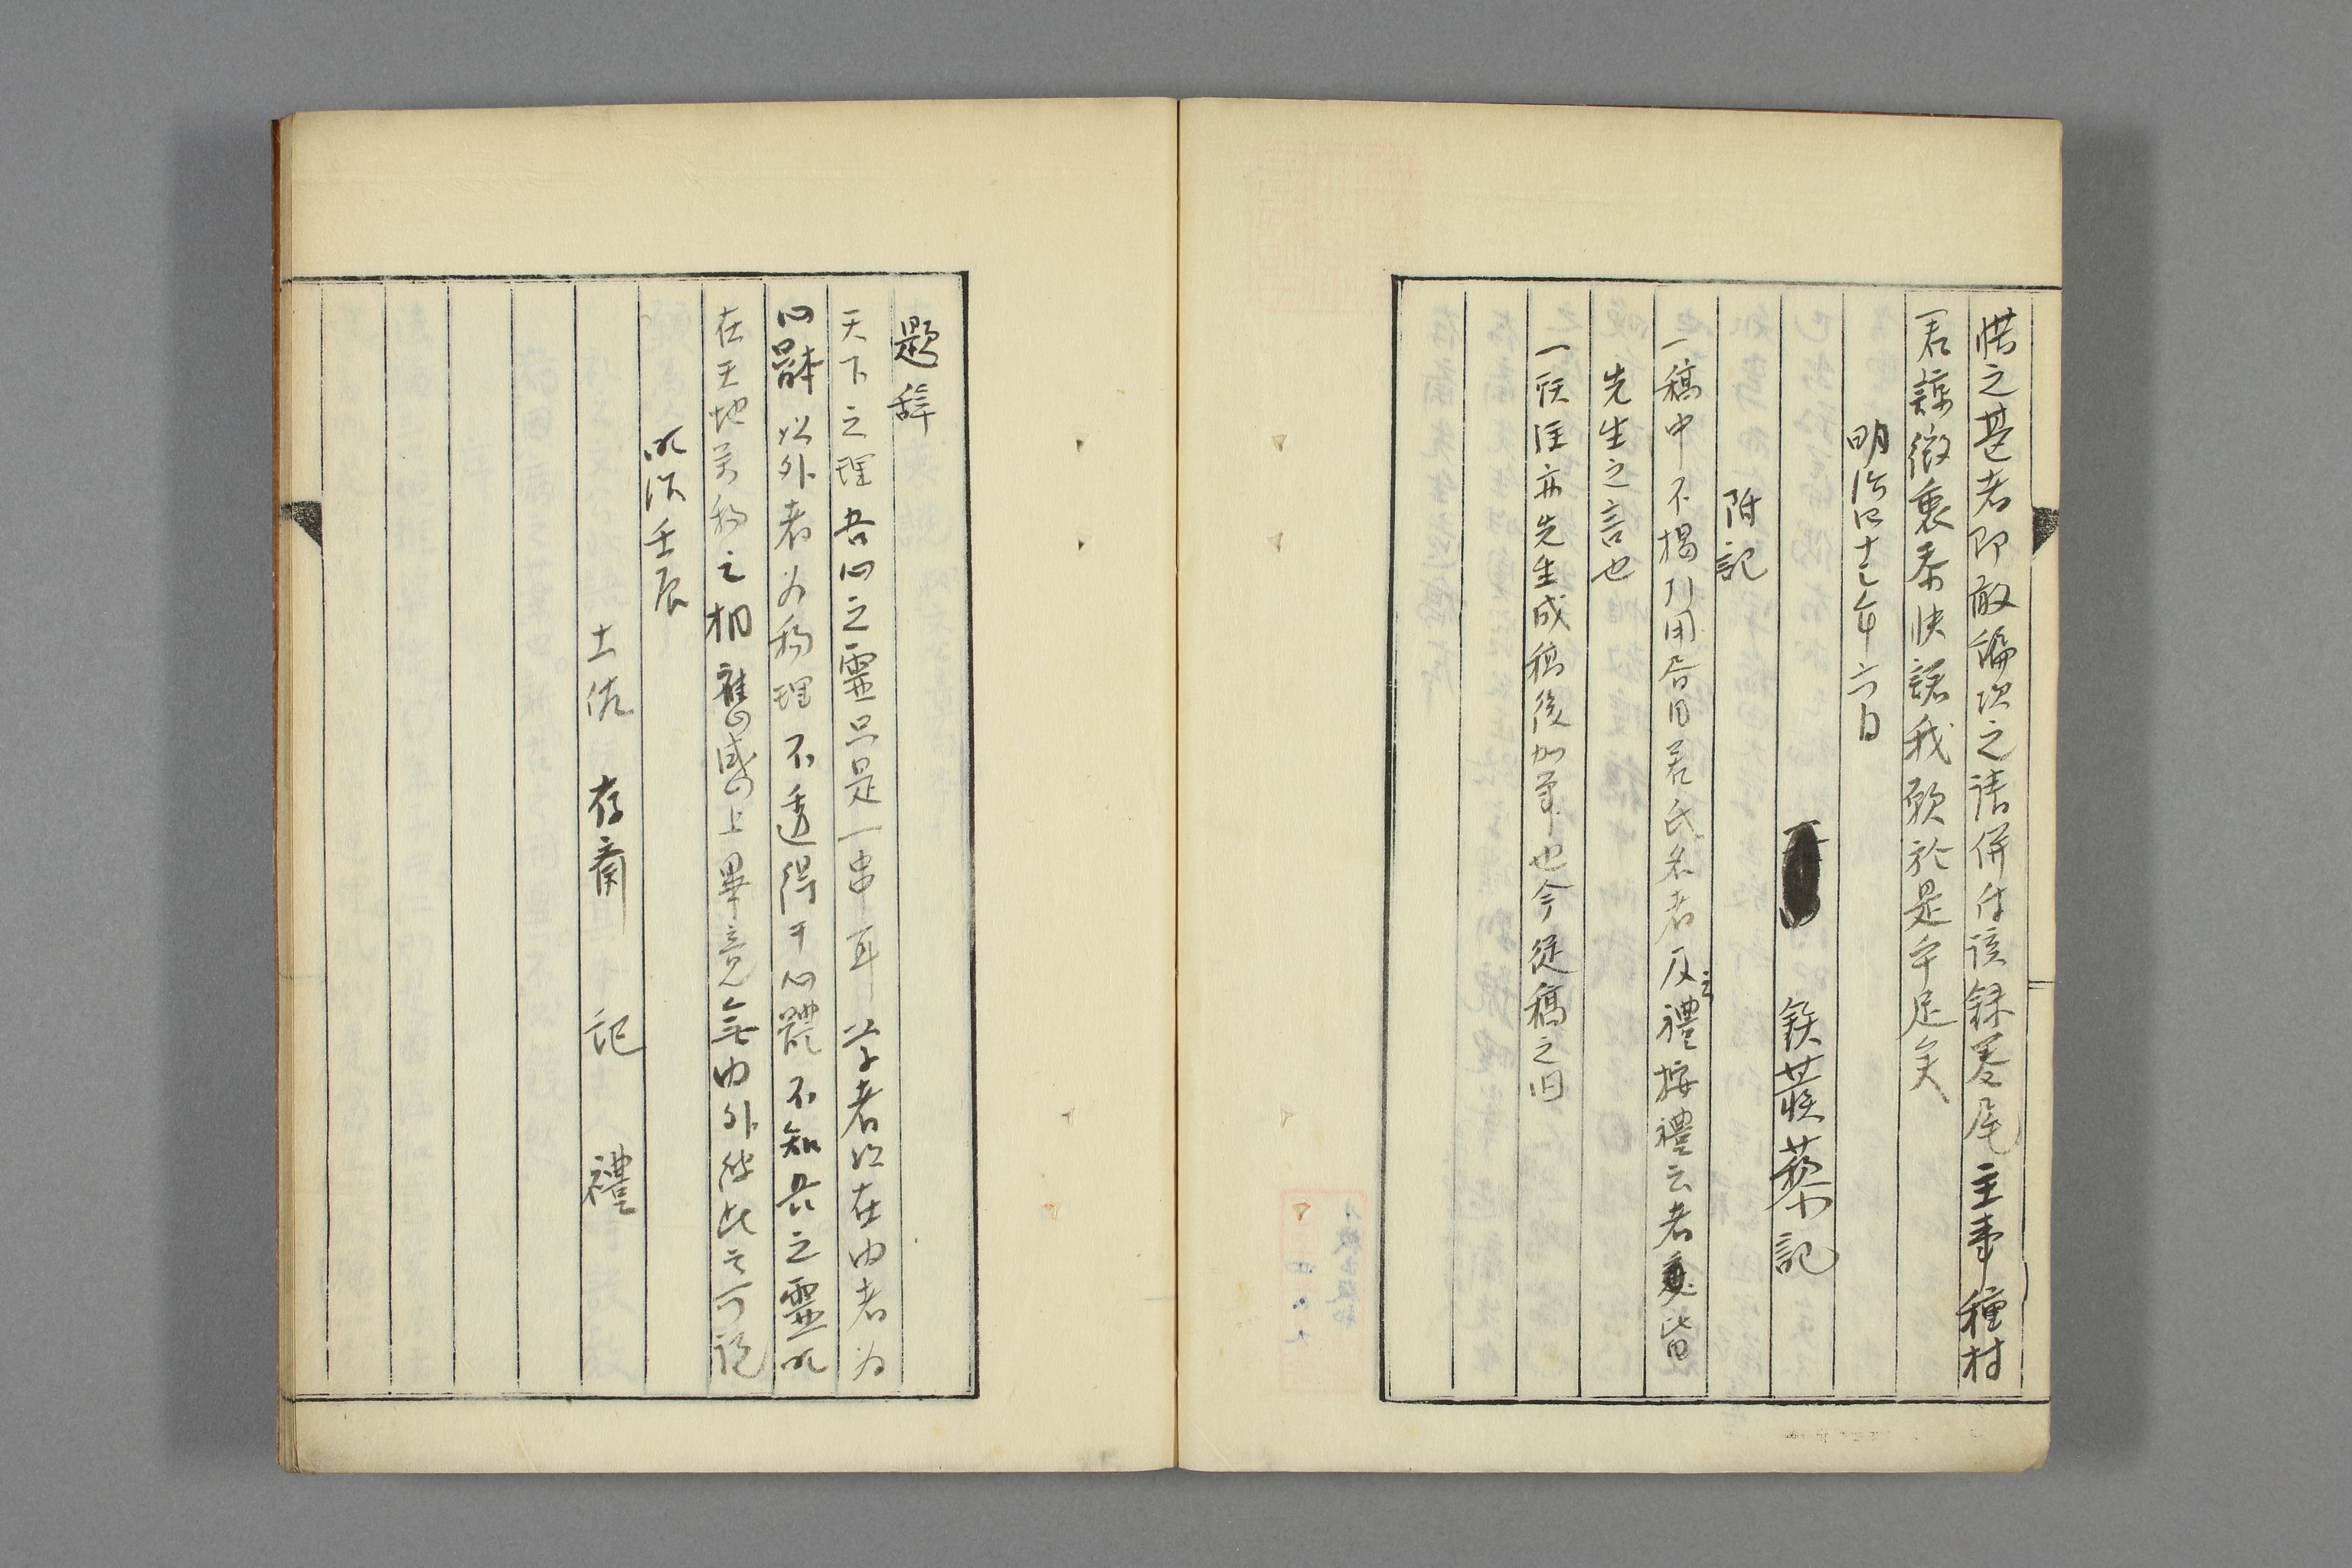 惜之甚者即敢編次之請併付該録巻尾主事種村
君諒微衷忝快諾我願於是乎足矣
明治四十二年六月
鉄叢蔡記
附記
一稿中不掲引用居目若氏名者及禮按禮云者皆
先生之言也
一朕註亦先生成稿後加筆也今従稿之旧
題辞
天下之理吾心之靈只是一串耳学者以在内者為
心體以外者為物理不透得于心體不知吾之靈明
在天地万物之相旧感上畢竟無内外彼此之可説
明治壬辰
土佐 存齋 記 禮